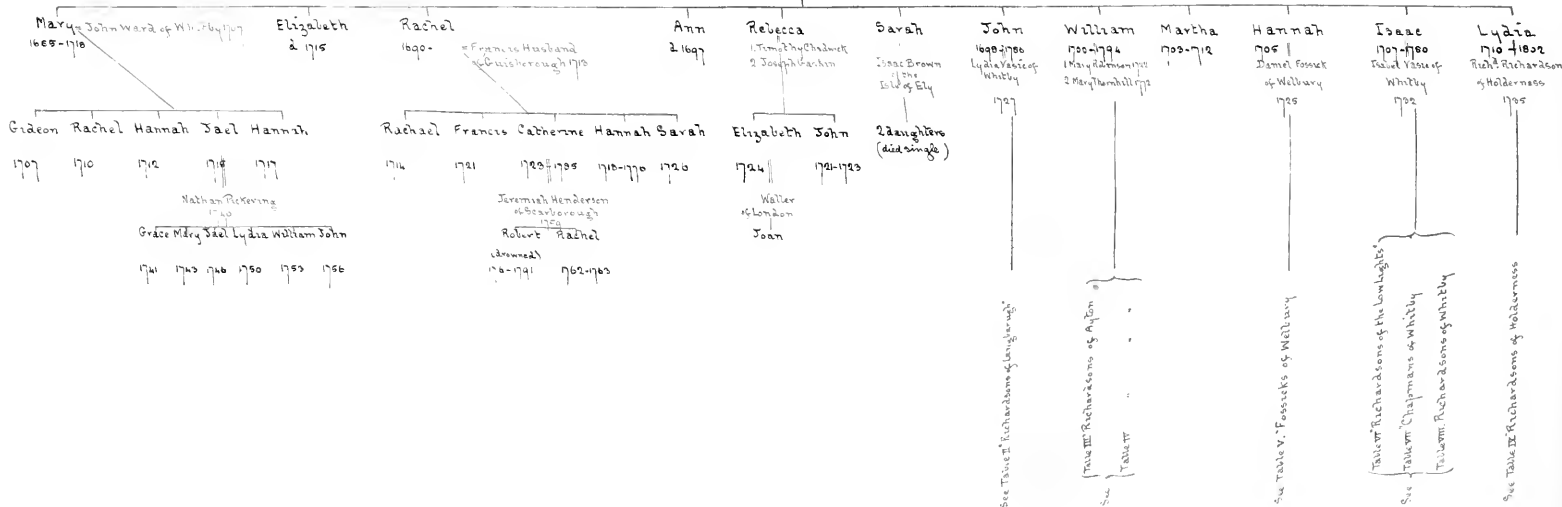 Mary = John Ward of Whitby 1707
1685-1718
Elizabeth
d 1715
Rachel
1690-
= Francis Husband
of Guisborough 1713
Ann
d 1697
Rebecca
1. Timothy Chadwick
2 Joseph
Sarah
Isaac Brown
of the
Isle of Ely
John
1698-1786
Lydia Vasie of
Whitby
1727
William
1700-1794
1 Mary
2 Mary Thornhill 1772
Martha
1703-1712
Hannah
1705
Daniel Fossick
of Welbury
1725
Isaac
1707-1780
Isabel Vasie of
Whitby
1732
Lydia
1710 1802
Richd Richardson
of Holderness
1735
Gideon Rachel Hannah Jael Hannah
1707 1710 1712 1715 1717
Nathan Pickering
1740
Grace Mary Jael Lydia William John
1741 1743 1746 1750 1753 1756
Rachael Francis Catherine Hannah Sarah
1714 1721 1723 1795 1718-1770 1726
Jeremiah Henderson
of Scarborough
1759
Robert Rachel
(drowned)
1791 1762-1763
Elizabeth John
1724 1721-1723
Waller
of London
Joan
2 daughters
(died single)
See Table II "Richardsons of Langbarugh"
See
Table III "Richardsons of Ayton"
Table IV " " "
See Table V. "Fossicks of Welbury
See
Table VI "Richardsons of the Low Lights"
Table VII "Chapmans of Whitby
Table VIII. Richardsons of Whitby
See Table IX "Richardsons of Holderness